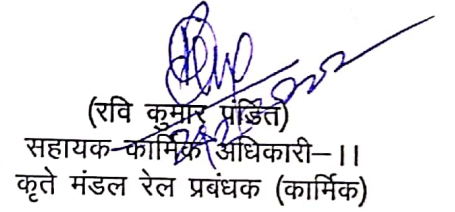 (रवि कुमार पंडित)
सहायक कार्मिक अधिकारी–II
कृते मंडल रेल प्रबंधक (कार्मिक)